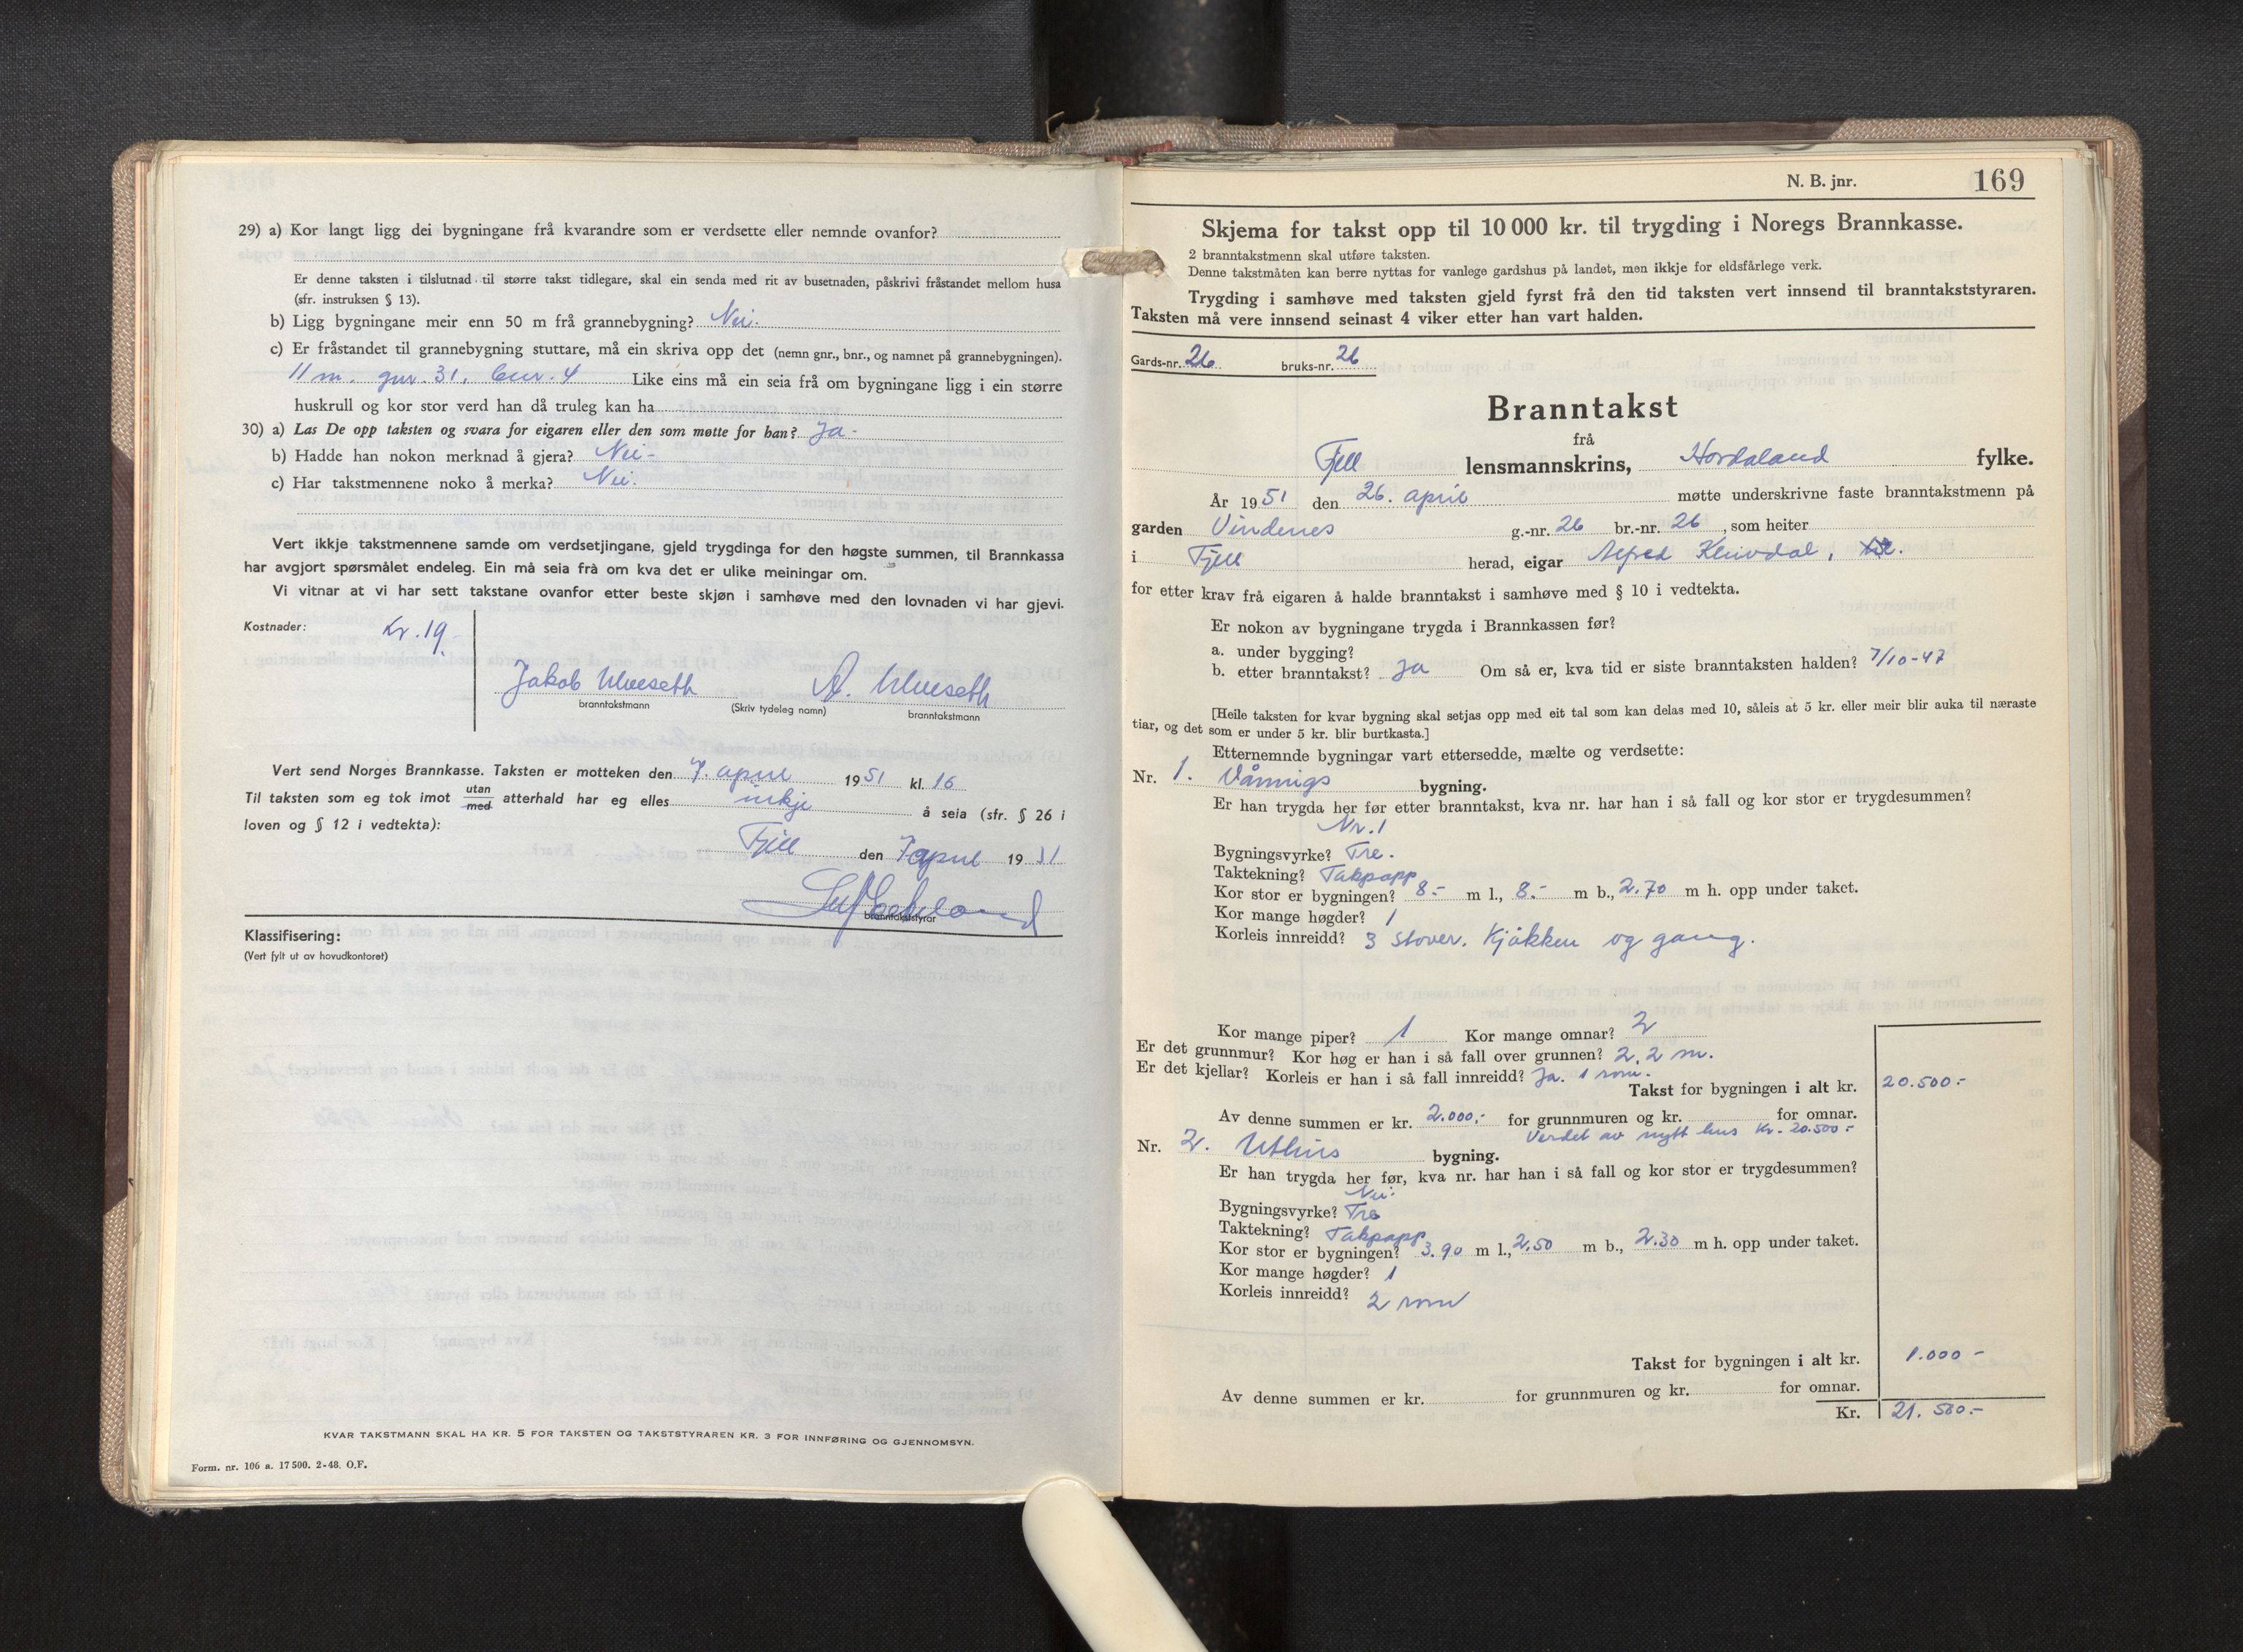 29) a) Kor langt ligg dei bygningane frå kvarandre som er verdsette eller nemnde ovanfor?
Er denne taksten i tilslutnad til større takst tidlegare, skal ein senda med rit av busetnaden, påskrivi fråstandet mellom husa
(sfr. instruksen § 13).
b) Ligg bygningane meir enn 50 m frå grannebygning? Nei.
c) Er fråstandet til grannebygning stuttare, må ein skriva opp det (nemn gnr., bnr., og namnet på grannebygningen).
11 m. gnr. 31, bnr. 4 Like eins må ein seia frå om bygningane ligg i ein større
huskrull og kor stor verd han då truleg kan ha
30) a) Las De opp taksten og svara for eigaren eller den som møtte for han? Ja.
b) Hadde han nokon merknad å gjera? Nei-
c) Har takstmennene noko å merka? Nei.
Vert ikkje takstmennene samde om verdsetjingane, gjeld trygdinga for den høgste summen, til Brannkassa
har avgjort spørsmålet endeleg. Ein må seia frå om kva det er ulike meiningar om.
Vi vitnar at vi har sett takstane ovanfor etter beste skjøn i samhøve med den lovnaden vi har gjevi.
Kostnader: Kr. 19.-
Jakob Ulveseth A. Ulveseth
branntakstmann (Skriv tydeleg namn) branntakstmann
Vert send Norges Brannkasse. Taksten er motteken den 7. april 1951 kl. 16
Til taksten som eg tok imot utan/med atterhald har eg elles inkje å seia (sfr. § 26 i
loven og § 12 i vedtekta):
Fjell den 7 april 19 51
branntakststyrar
Klassifisering:
(Vert fylt ut av hovudkontoret)
KVAR TAKSTMANN SKAL HA KR. 5 FOR TAKSTEN OG TAKSTSTYRAREN KR. 3 FOR INNFØRING OG GJENNOMSYN.
Form. nr. 106 a. 17 500. 2-48. O.F.
N. B. jnr. 169
Skjema for takst opp til 10 000 kr. til trygding i Noregs Brannkasse.
2 branntakstmenn skal utføre taksten.
Denne takstmåten kan berre nyttas for vanlege gardshus på landet, men ikkje for eldsfårlege verk.
Trygding i samhøve med taksten gjeld fyrst frå den tid taksten vert innsend til branntakststyraren.
Taksten må vere innsend seinast 4 viker etter han vart halden.
Gards-nr. 26 bruks-nr. 26
Branntakst
frå
Fjell lensmannskrins, Hordaland fylke.
År 1951 den 26. april møtte underskrivne faste branntakstmenn på
garden Vindenes g.-nr. 26 br.-nr. 26, som heiter
i Fjell herad, eigar Alfred Kleivdal,
for etter krav frå eigaren å halde branntakst i samhøve med § 10 i vedtekta.
Er nokon av bygningane trygda i Brannkassen før?
a. under bygging?
b. etter branntakst? Ja Om så er, kva tid er siste branntaksten halden? 7/10-47
[Heile taksten for kvar bygning skal setjas opp med eit tal som kan delas med 10, såleis at 5 kr. eller meir blir auka til næraste
tiar, og det som er under 5 kr. blir burtkasta.]
Etternemnde bygningar vart ettersedde, mælte og verdsette:
Nr. 1. Vånnigs bygning.
Er han trygda her før etter branntakst, kva nr. har han i så fall og kor stor er trygdesummen?
Nr. 1
Bygningsvyrke? Tre.
Taktekning? Takpapp
Kor stor er bygningen? 8.- m l., 8.- m b., 2.70 m h. opp under taket.
Kor mange høgder? 1
Korleis innreidd? 3 stover. Kjøkken og gang.
Kor mange piper? 1 Kor mange omnar? 2
Er det grunnmur? Kor høg er han i så fall over grunnen? 2,2 m.
Er det kjellar? Korleis er han i så fall innreidd? Ja. 1 rom.
Takst for bygningen i alt kr. 20.500.-
Av denne summen er kr. 2.000,- for grunnmuren og kr. for omnar.
Verdet av nytt hus kr. 20.500.-
Nr. 2. Uthus bygning.
Er han trygda her før, kva nr. har han i så fall og kor stor er trygdesummen?
Nei.
Bygningsvyrke? Tre
Taktekning? Takpapp
Kor stor er bygningen? 3.90 m l., 2.50 m b., 2.30 m h. opp under taket.
Kor mange høgder? 1
Korleis innreidd? 2 rom
Takst for bygningen i alt kr. 1.000 -
Av denne summen er kr. for grunnmuren og kr. for omnar.
Kr. 21.500.-